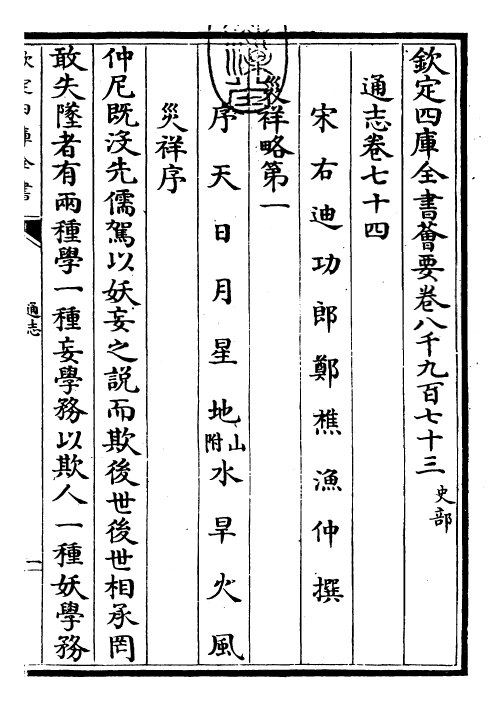 欽定四庫全書薈要卷八千九百七十三 史部
通志卷七十四
宋右迪功郎鄭樵漁仲撰
災祥略第一
序天日月星地山附水旱火風
災祥序
仲尼既沒先儒駕以妖妄之説而欺後世後世相承罔
敢失墜者有兩種學一種妄學務以欺人一種妖學務
欽定四庫全書
通志
一